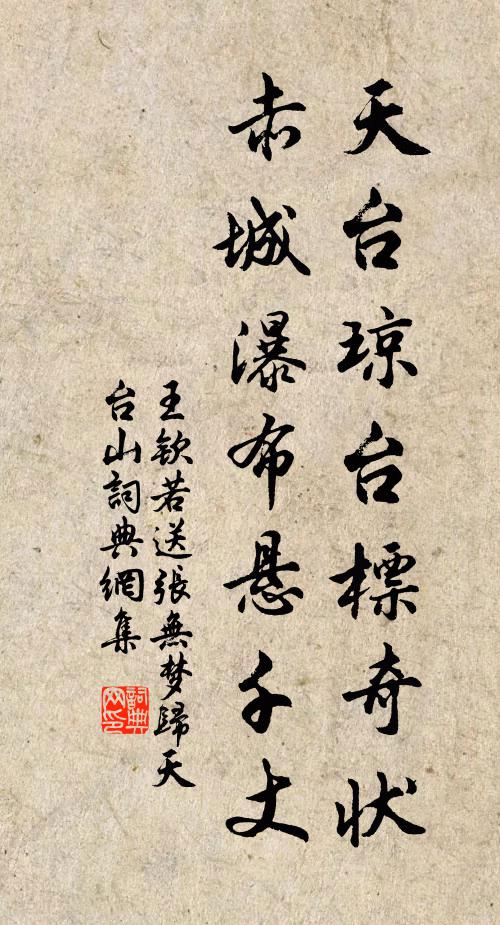 天台琼台標奇状
赤城瀑布悬千丈
王钦若送張無梦歸天
台山詞典網集
詞典
网印